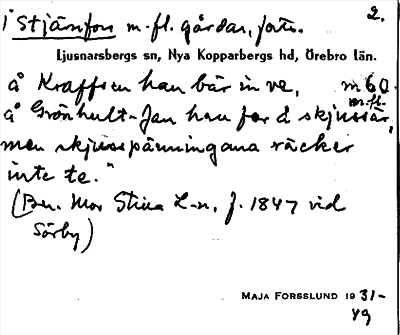 i Stjärnfors m.fl. gårdar, forts. 2.
Ljusnarsbergs sn, Nya Kopparbergs hd, Örebro län.
å Kraffsen han bär in ve, m 60.
m.fl.
å Grönhult-Jan han far å skjussar,
men skjusspänningana räcker
inte te."
(Ber. Mor Stina L-n, f. 1847 vid
Sörby)
MAJA FORSSLUND 1931-
49